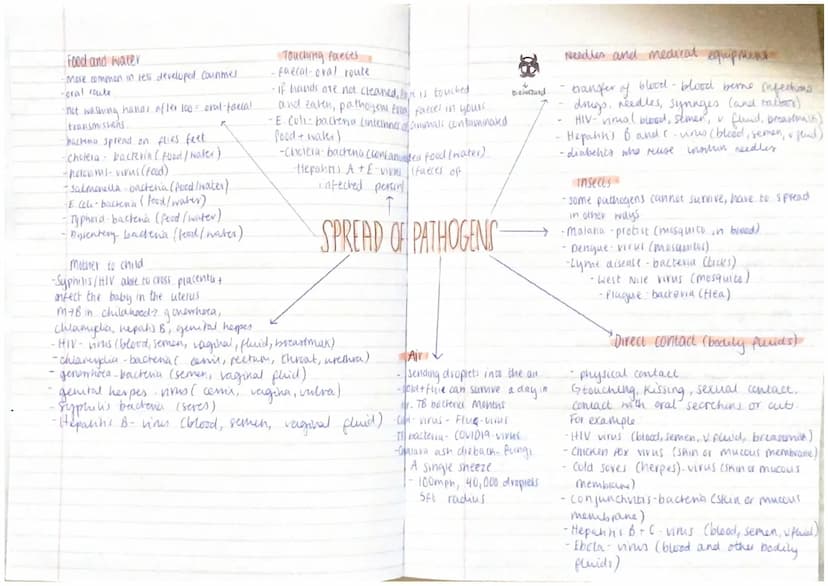 Food and water
- More common in less developed countries
- oral route
not washing hands after loo = oral-faecal
transmissions.
bacteria spread on flies feet
- cholera - bacteria (food/water)
- norovirus - virus (food)
- salmonella - bacteria (food/water)
E. coli - bacteria (food/water)
- Typhoid - bacteria (food/water)
- Dysentery bacteria (food/water)
Touching faeces
- faecal-oral route
- if hands are not cleaned, is touched
and eaten, pathogens from faeces in yours
- E. coli - bacteria (intestines of animals contaminated
food + water)
- Cholera - bacteria (contaminated food/water)
- Hepatitis A + E - virus (faeces of
infected person)
biohazard
Needles and medical equipment
- transfer of blood - blood borne infections
- drugs, needles, syringes (and tattoos)
- HIV - viral (blood, semen, v fluid, breastmilk)
- Hepatitis B and C - virus (blood, semen, v fluid)
- diabetics who reuse insulin needles
Insects
- some pathogens cannot survive, have to spread
in other ways
- Malaria - protist (mosquito in blood)
- Dengue - virus (mosquitos)
- Lyme disease - bacteria (ticks)
- West Nile virus (mosquito)
- Plague - bacteria (flea)
SPREAD OF PATHOGENS
Mother to child
- Syphilis/HIV able to cross placenta +
infect the baby in the uterus
M→B in childhood? gonorrhoea,
chlamydia, hepatis B, genital herpes
- HIV - virus (blood, semen, vaginal, fluid, breastmilk)
- chlamydia - bacteria (cervix, rectum, throat, urethra)
- gonorrhoea - bacteria (semen, vaginal fluid)
- genital herpes - virus (cervix, vagina, vulva)
- Syphilis bacteria (sores)
- Hepatitis B - virus (blood, semen, vaginal fluid)
Air
- sending droplets into the air
cold + flu can survive a day in
air. TB bacteria months
Cold - virus - Flu - virus
TB bacteria - COVID19 - virus
ash dieback - fungi
A single sneeze
- 100mph, 40,000 droplets
5ft radius
Direct contact (bodily fluids)
- physical contact
↳ touching, kissing, sexual contact,
contact with oral secretions or cuts.
For example
- HIV virus (blood, semen, v fluid, breastmilk)
- Chicken Pox virus (skin or mucous membrane)
- Cold sores (herpes) - virus (skin or mucous
membrane)
- Conjunctivitis - bacteria (skin or mucous
membrane)
- Hepatitis B + C - virus (blood, semen, v fluid)
- Ebola - virus (blood and other bodily
fluids)